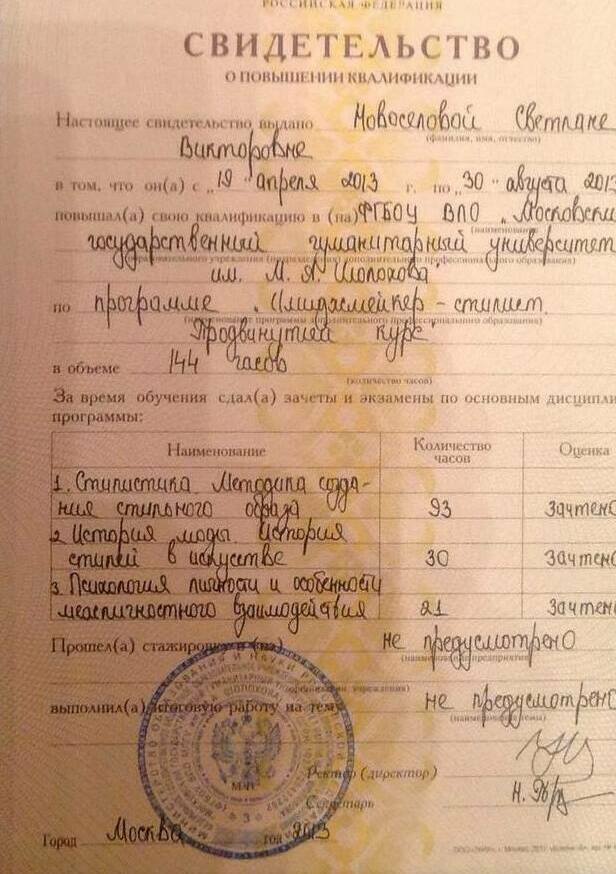 РОССИЙСКАЯ ФЕДЕРАЦИЯ
СВИДЕТЕЛЬСТВО
О ПОВЫШЕНИИ КВАЛИФИКАЦИИ
Настоящее свидетельство выдано Новоселовой Светлане
(фамилия, имя, отчество)
Викторовне
в том, что он(а) с „19" апреля 2013 г. по „30" августа 2013
повышал(а) свою квалификацию в (на) ФГБОУ ВПО „Московски
(наименование
государственный гуманитарный университет
образовательного учреждения (подразделения) дополнительного профессионального образования)
им. М. А. Шолохова"
по программе „Имиджмейкер - стилист.
(наименование программы дополнительного профессионального образования)
Продвинутый курс"
в объеме 144 часов
(количество часов)
За время обучения сдал(а) зачеты и экзамены по основным дисципли
программы:
Наименование Количество часов Оценка
1. Стилистика. Методика созда-
ния стильного образа 93 Зачтено
2. История моды. История
стилей в искусстве 30 Зачтено
3. Психология личности и особенности
межличностного взаимодействия 21 Зачтено
Прошел(а) стажировку в (на) не предусмотрено
(наименование предприятия,
организации, учреждения)
выполнил(а) итоговую работу на тему не предусмотрено
(наименование темы)
Ректор (директор)
М.П.
Секретарь
Город Москва год 2013